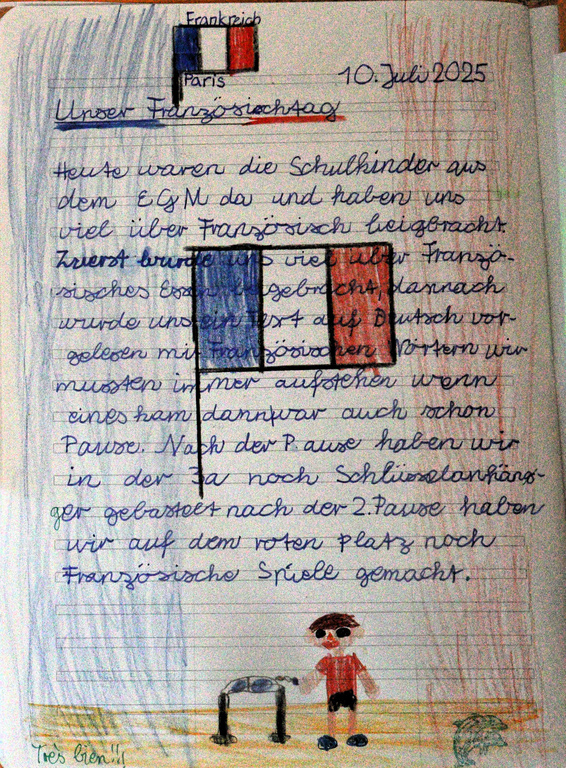 Frankreich
Paris
10. Juli 2025
Unser Französischtag
Heute waren die Schulkinder aus
dem EGM da und haben uns
viel über Französisch beigbracht.
Zuerst wurde uns viel über Franzö-
sisches Essen beigebracht, dannach
wurde uns ein Text auf Deutsch vor-
gelesen mit Französischen Wörtern wir
mussten immer aufstehen wenn
eines kam dann war auch schon
Pause. Nach der Pause haben wir
in der 3a noch Schlüsselanhäng-
ger gebastelt nach der 2. Pause haben
wir auf dem roten Platz noch
Französische Spiele gemacht.
Très bien!!!